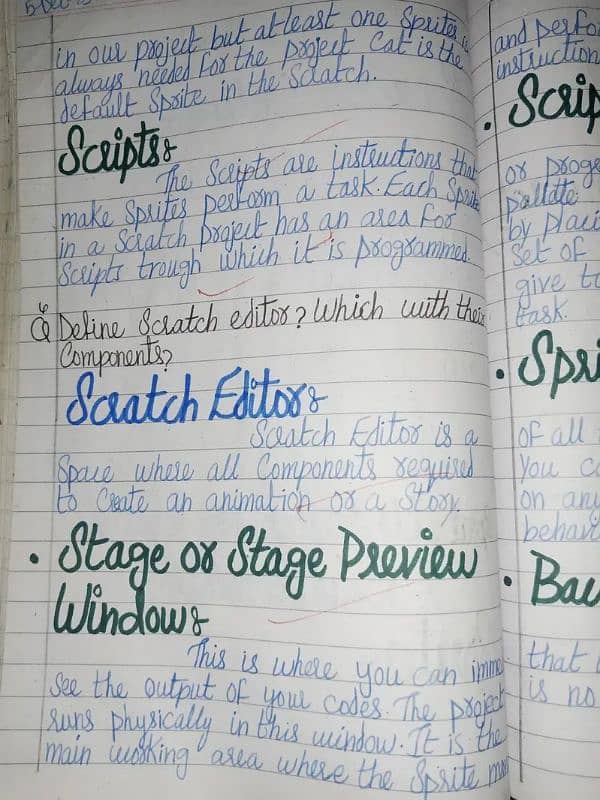 in our project but at least one Sprites is
always needed for the project Cat is the
default Sprite in the Scratch.
Scripts:
The Scripts are instructions that
make Sprites perform a task. Each Sprite
in a Scratch project has an area for
Scripts trough which it is programmed.
Q6 Define Scratch editor? Which with their
Components?
Scratch Editor:
Scratch Editor is a
Space where all Components required
to Create an animation or a Story.
• Stage or Stage Preview
Window:
This is where you can imme
See the output of your codes. The project
runs physically in this window. It is the
main working area where the Sprite
and perfo
instruction
• Scrip
or progr
pallate
by placi
Set of
give to
task.
• Spri
of all
you ca
on any
behavi
• Bac
that
is no